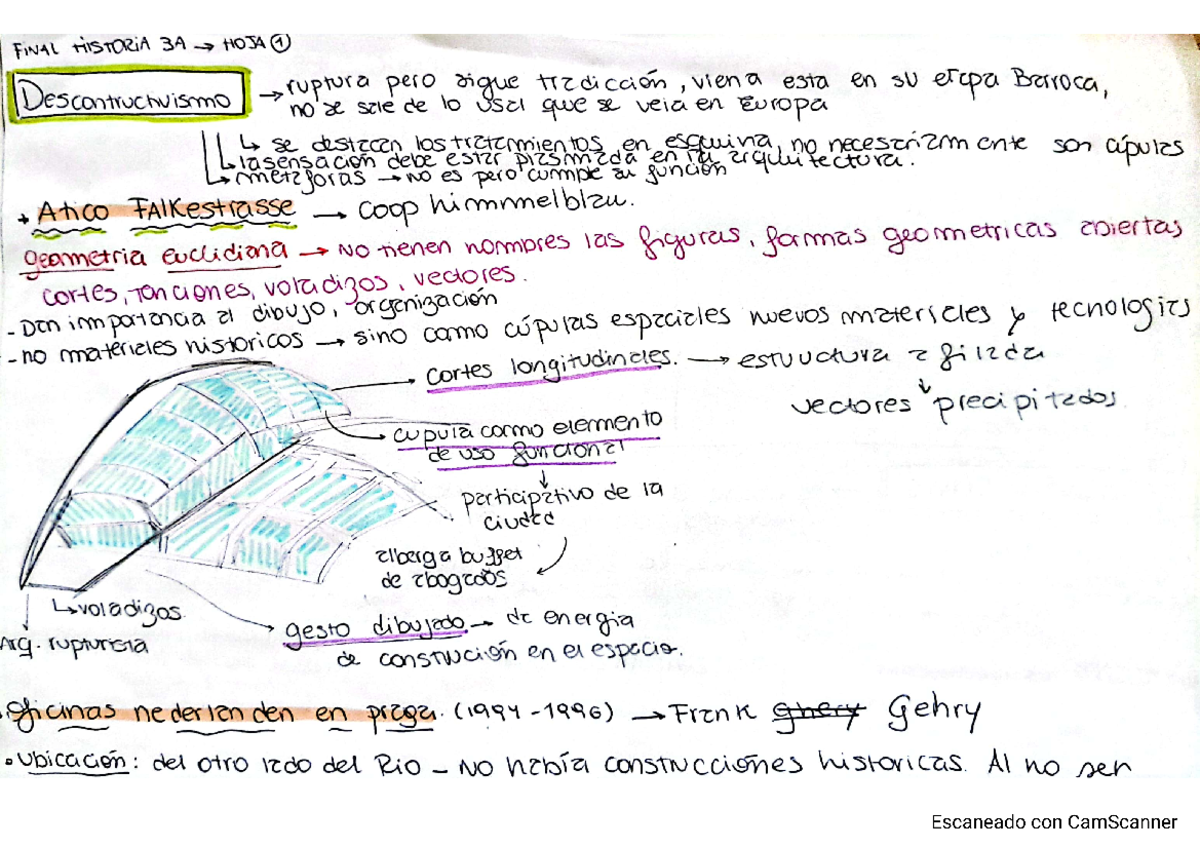 FINAL HISTORIA 3A → HOJA ①
Descontructivismo → ruptura pero sigue tradicción, viena esta en su etapa Barroca,
no se sale de lo usal que se veia en Europa
↳ se destacan los tratamientos en esquina, no necesariamente son cúpulas
↳ la sensación debe estar plasmada en la arquitectura.
↳ metaforas → no es pero cumple su función
Atico FAlkestrasse → Coop himmmelblau.
geometria euclidiana → No tienen nombres las figuras, formas geometricas abiertas
cortes, tonciones, voladizos, vectores.
- Dan importancia al dibujo, organización
- no materiales historicos → sino como cúpulas espaciales nuevos materiales y tecnologias
cortes longitudinales. → estructura afilada
↓
vectores precipitados.
cupula como elemento
de uso funcional
↓
participativo de la
ciudad
alberga buffet
de abogados
↳ voladizos.
Arq. rupturista
gesto dibujado → de energia
de construcción en el espacio.
Oficinas nederlanden en praga. (1994-1996) → Frank ghery Gehry
• Ubicación: del otro lado del Rio - No había construcciones historicas. Al no ser
Escaneado con CamScanner